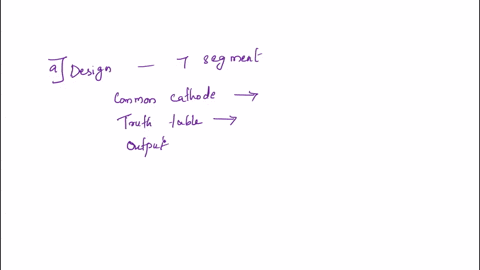 a] Design — 7 segment
Common cathode →
Truth table →
Output